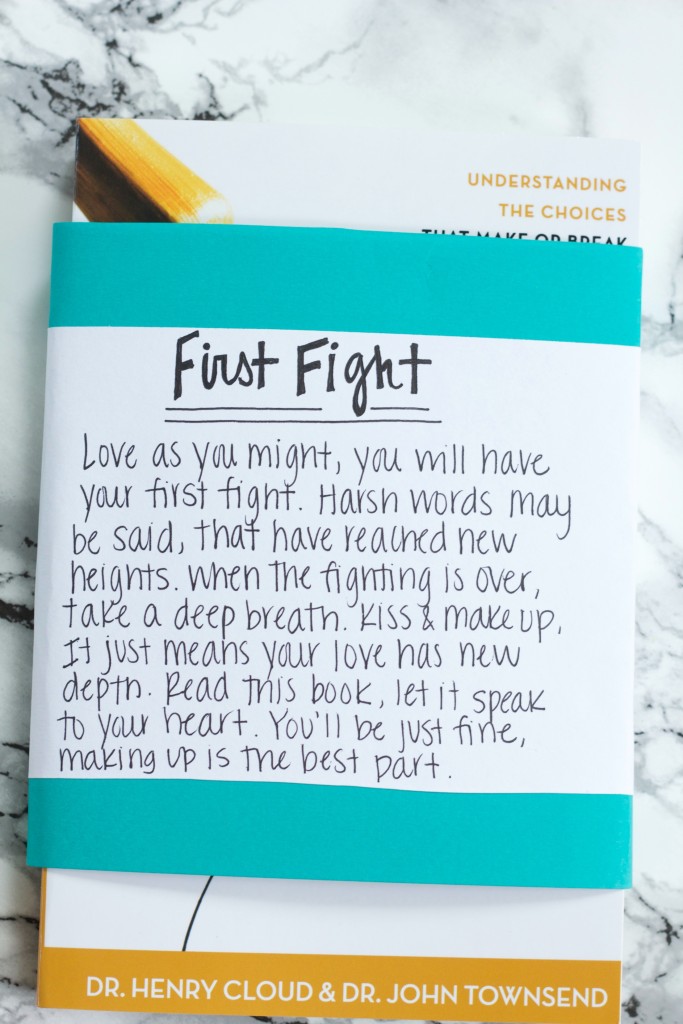 UNDERSTANDING
THE CHOICES
THAT MAKE OR BREAK
First Fight
Love as you might, you will have
your first fight. Harsh words may
be said, that have reached new
heights. When the fighting is over,
take a deep breath. Kiss & make up,
It just means your love has new
depth. Read this book, let it speak
to your heart. You'll be just fine,
making up is the best part.
DR. HENRY CLOUD & DR. JOHN TOWNSEND